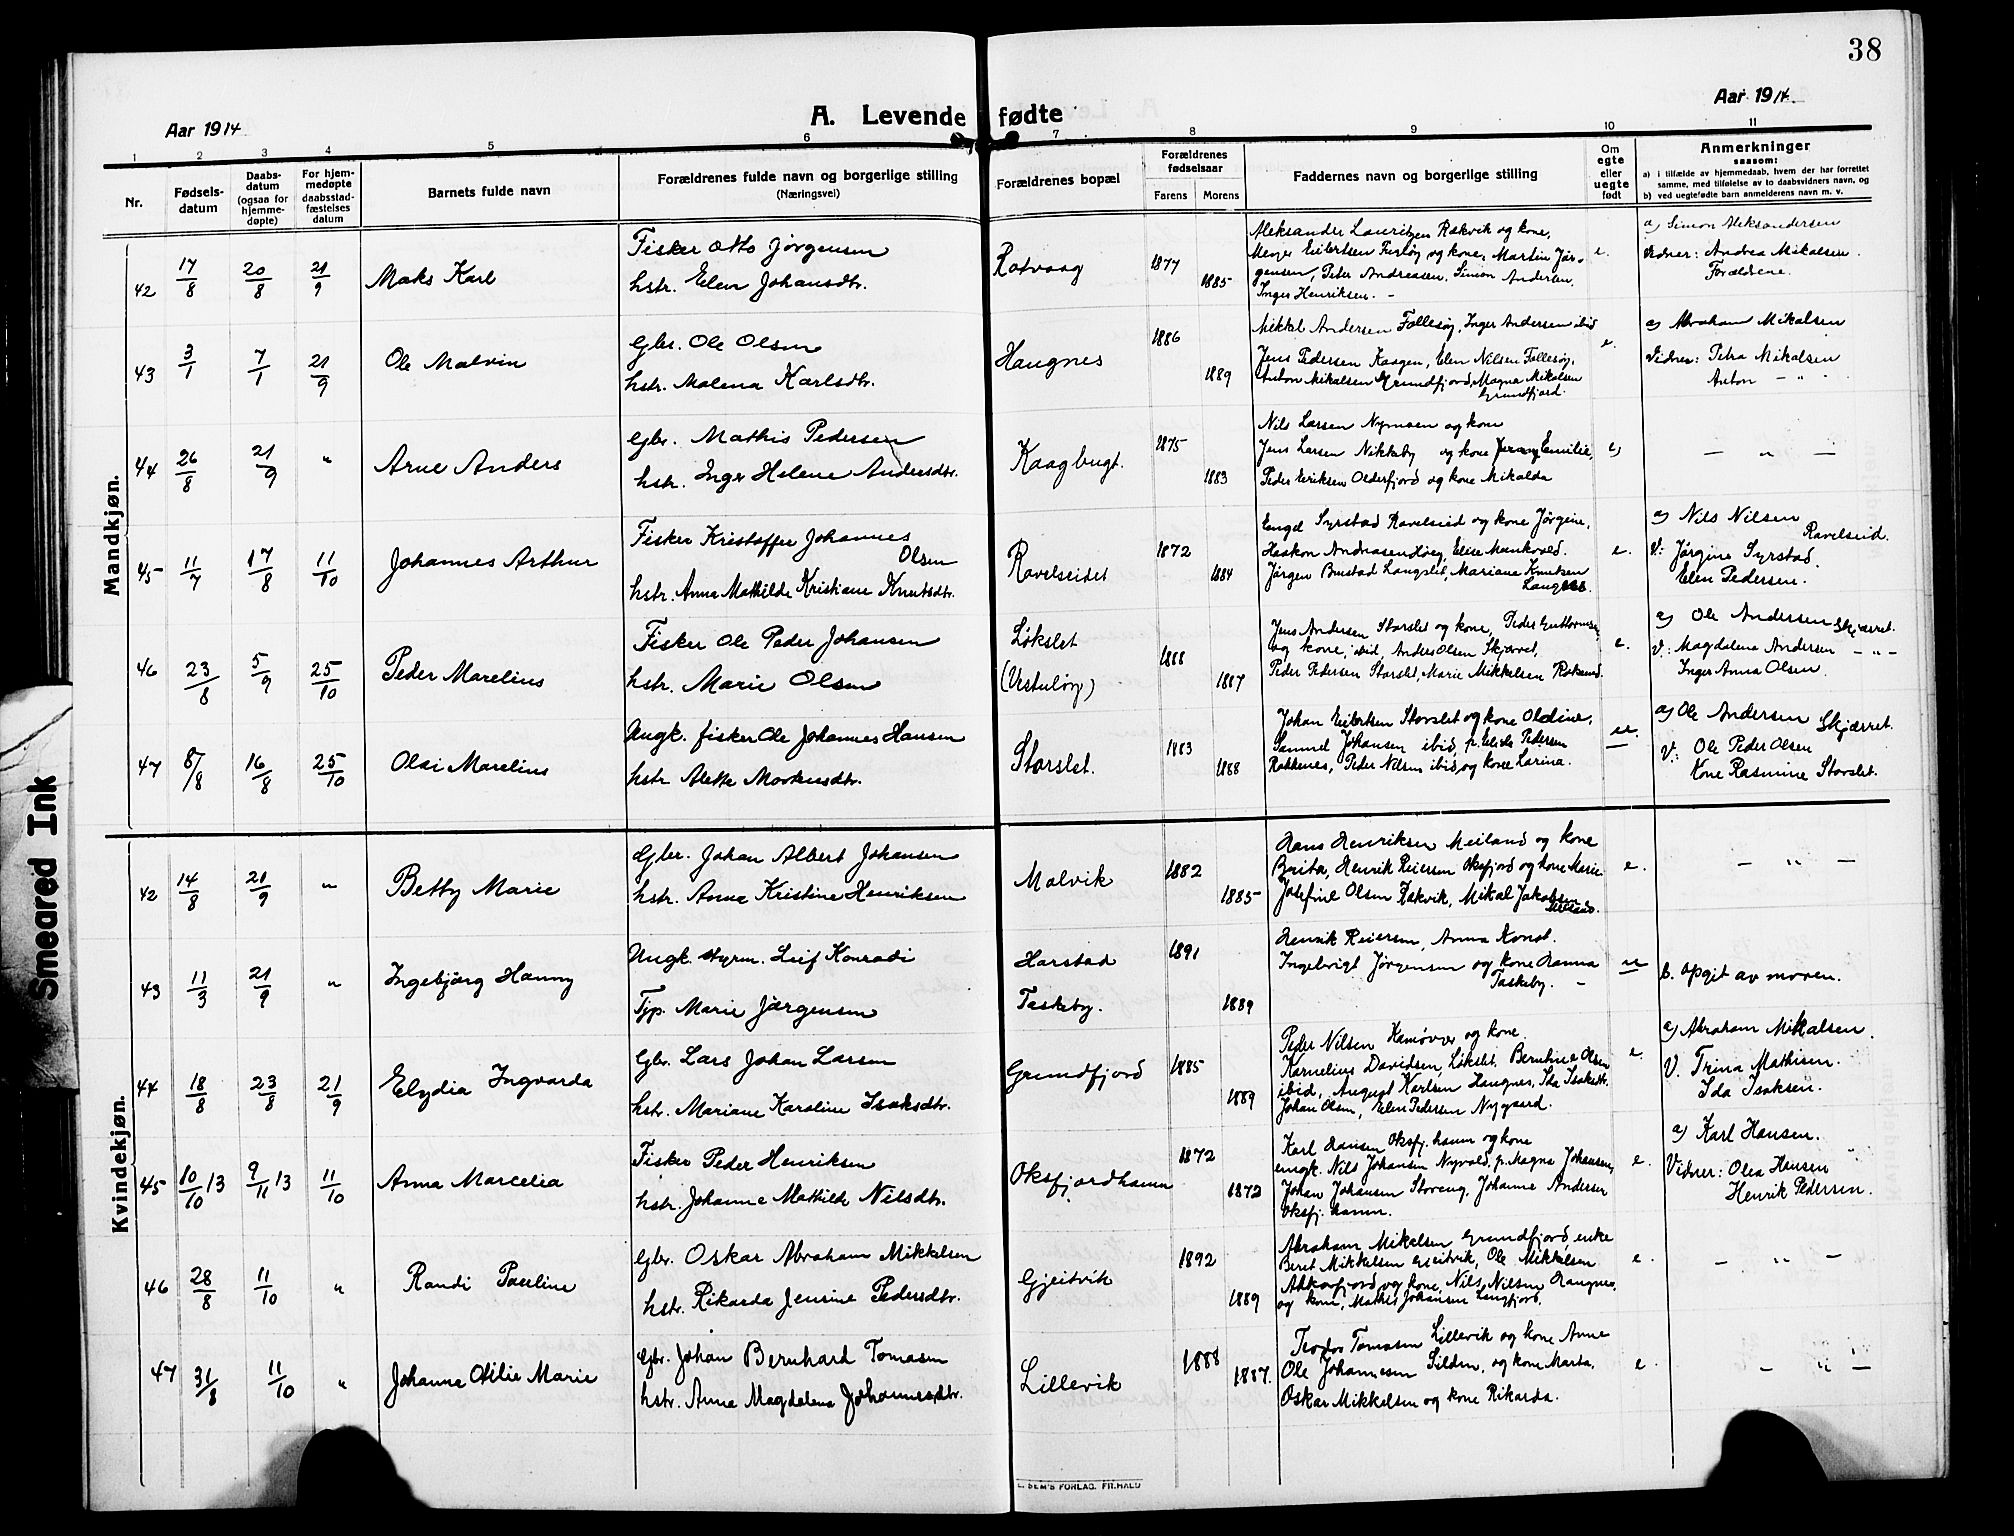 38
Aar 1914
A. Levende fødte
Aar 1914.
1 2 3 4 5 6 7 8 9 10 11
Nr.
Fødsels-
datum
Daabs-
datum
(ogsaa for
hjemme-
døpte)
For hjem-
medøpte
daabsstad-
fæstelses
datum
Barnets fulde navn
Forældrenes fulde navn og borgerlige stilling
(Næringsvei)
Forældrenes bopæl
Forældrenes
fødselsaar
Farens Morens
Faddernes navn og borgerlige stilling
Om
egte
eller
uegte
født
Anmerkninger
saasom:
a) i tilfælde av hjemmedaab, hvem der har forrettet
samme, med tilføielse av to daabsvidners navn, og
b) ved uegtefødte barn anmelderens navn m. v.
Mandkjøn.
42 17/8 20/8 21/9 Maks Karl
Fisker Otto Jørgensen
hstr. Elen Johansdtr.
Rotvaag 1877 1885
Aleksander Lauritzen Rakvik og kone,
Meyer Eilertsen og kone, Martin Jør-
gensen, Peder Andreasen, Simon Andersen,
Inger Henriksen. -
e.
a) Simon Aleksandersen
Vidner: Andrea Mikalsen.
Forældrene.
43 3/1 7/1 21/9 Ole Malvin
Gbr. Ole Olsen
hstr. Malena Karlsdtr.
Haugnes 1886 1889
Mikkel Andersen Follesøy, Inger Andersen ibid
Jens Pedersen Kaagen, Elen Nilsen Follesøy,
Anton Mikalsen Grundfjord, Magna Mikalsen
Grundfjord.
e.
a) Abraham Mikalsen
Vidner: Petra Mikalsen
Anton - " -
44 26/8 21/9 " Arne Anders
Gbr. Mathis Pedersen
hstr. Inger Helene Andersdtr.
Kaagbugt. 1875 1883
Nils Larsen Nymoen og kone
Jens Larsen Nikkeby og kone Emilie,
Peder Eriksen Olderfjord og kone Mikalda
e)
- " -
45 11/7 17/8 11/10 Johannes Arthur
Fisker Kristoffer Johannes
Olsen
hstr. Anna Mathilde Kristiane Knutsdtr.
Ravelseidet 1872 1884
Engel Syrstad Ravelseid og kone Jørgine,
Haakon Elise
Jørgen Langslet, Mariane Knutsen
e.
a) Nils Nilsen
Ravelseid.
V: Jørgine Syrstad.
Elen Pedersen.
46 23/8 5/9 25/10 Peder Marelius
Fisker Ole Peder Johansen
hstr. Marie Olsen
Løkslet
1888 1887
Jens Andersen Storslet og kone, Peder
og kone, ibid, Anders Olsen Skjærvet,
Peder Pedersen Storslet, Marie Mikkelsen
e.
a) Ole Andersen Skjærret.
V: Magdalena Andersen - " -
Inger Anna Olsen.
47 8/8 16/8 25/10 Olai Marelius
Ungk. fisker Ole Johannes Hansen
hstr Alette Morkusdtr.
Storslet. 1883 1888
Johan Eilertsen Storslet og kone Oldine,
Samuel Johansen ibid, p. Pedersen
Rakkenes, Peder Nilsen ibid, og kone Larina.
ue.
a) Ole Andersen Skjærret.
V: Ole Peder Olsen
Kone Rasmine Storslet.
Kvindekjøn.
42 14/8 21/9 " Betty Marie
Gbr. Johan Albert Johansen
hstr. Anna Kristine Henriksen
Malvik 1882 1885
Hans Henriksen Meiland og kone
Berita, Henrik Reiersen Oksfjord og kone Marie
Josefine Olsen Rakvik, Mikal Jakobsen
Meiland.
e.
- " -
43 11/3 21/9 " Ingebjørg Hanny
Ungk. styrm. Leif Konradi
Tjp. Marie Jørgensen
Harstad
Taskeby. 1891 1889
Henrik Reiersen, Anna
Ingebrigt Jørgensen og kone Hanna
Taskeby. -
ue
b. opgit av moren.
44 18/8 23/8 21/9 Elydia Ingvarda
Gbr. Lars Johan Larsen
hstr. Mariane Karoline Isaksdtr.
Grundfjord 1885 1889
Peder Nilsen og kone
Kornelius Davidsen, Løkslet, Berntine Olsen
ibid, August Karlsen Haugnes, Ida Isaksdtr.
Johan Olsen, Elen Pedersen Nygaard.
e.
a) Abraham Mikalsen.
V. Trina Mathisen.
Ida Isaksen.
45 10/10 13 9/11 13 11/10 Anna Marcelia
Fisker Peder Henriksen
hstr. Johanne Mathilde Nilsdtr.
Oksfjordhamn 1872 1872
Karl Hansen Oksfj. hamn og kone
ungk. Nils Johansen p. Magna Johansen,
Johan Johansen Storeng, Johanne Andersen
Oksfj. hamn.
e.
a) Karl Hansen.
Vidner: Olea Hansen
Henrik Pedersen.
46 28/8 11/10 " Randi Pauline
Gbr. Oskar Abraham Mikkelsen
hstr. Rikarda Jensine Pedersdtr.
Gjeitvik 1892 1889
Abraham Mikalsen Grundfjord, enke
Beret Mikkelsen Gjeitvik, Ole Mikkelsen
og kone, Nils Nilsen Haugnes,
og kone, Mathis Johansen Langfjord.
e.
- " -
47 31/8 11/10 " Johanna Otilie Marie
Gbr. Johan Bernhard Tomasen
hstr. Anna Magdalena Johannesdtr.
Lillevik 1888 1887.
Teodor Tomasen Lillevik og kone Anne
Ole Johannesen Silden, og kone Marta,
Oskar Mikkelsen og kone Rikarda.
e.
- " -
SEM'S FORLAG. FR.HALD
Smeared Ink